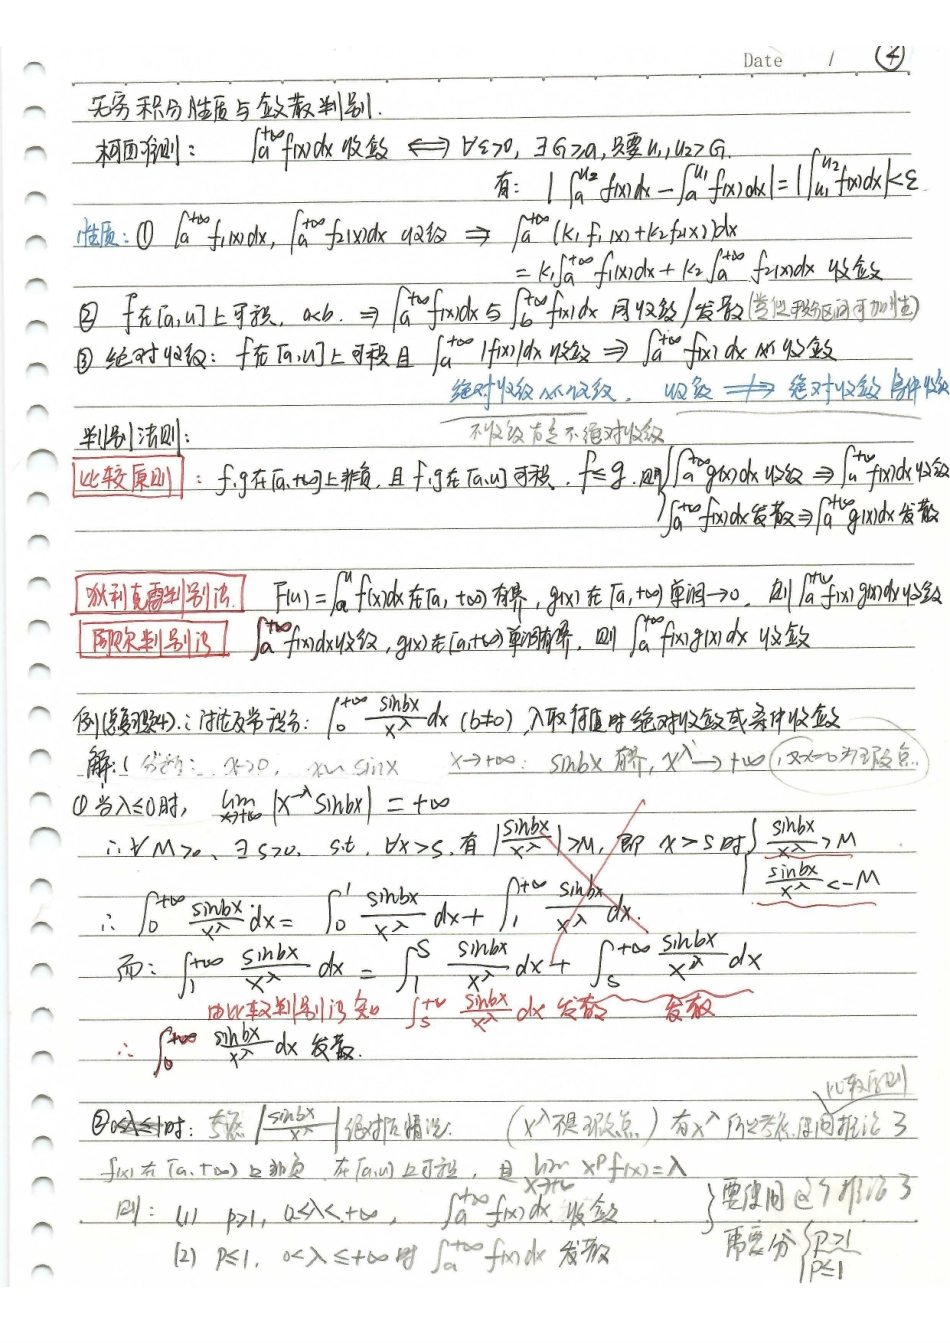 Date / ④
无穷积分性质与敛散判别.
柯西准则: ∫_a^{+∞} f(x)dx 收敛 ⟺ ∀ε>0, ∃G>a, 只要 u₁,u₂>G.
有: |∫_a^{u₂} f(x)dx − ∫_a^{u₁} f(x)dx| = |∫_{u₁}^{u₂} f(x)dx| < ε
性质: ① ∫_a^{+∞} f₁(x)dx, ∫_a^{+∞} f₂(x)dx 收敛 ⇒ ∫_a^{+∞} (k₁f₁(x)+k₂f₂(x))dx
= k₁∫_a^{+∞} f₁(x)dx + k₂∫_a^{+∞} f₂(x)dx 收敛
② f在[a,u]上可积, a<b. ⇒ ∫_a^{+∞} f(x)dx 与 ∫_b^{+∞} f(x)dx 同收敛/发散 (类似积分区间可加性)
③ 绝对收敛: f在[a,u]上可积且 ∫_a^{+∞} |f(x)|dx 收敛 ⇒ ∫_a^{+∞} f(x)dx 必收敛
绝对收敛必收敛. 收敛 ⇏ 绝对收敛 条件收敛
不收敛 不绝对收敛
判别法则:
比较原则: f,g在[a,+∞)上非负, 且f,g在[a,u]可积. f≤g. 则 { ∫_a^{+∞} g(x)dx 收敛 ⇒ ∫_a^{+∞} f(x)dx 收敛
∫_a^{+∞} f(x)dx 发散 ⇒ ∫_a^{+∞} g(x)dx 发散
狄利克雷判别法 F(u)=∫_a^u f(x)dx 在[a,+∞)有界, g(x)在[a,+∞)单调→0. 则 ∫_a^{+∞} f(x)g(x)dx 收敛
阿贝尔判别法 ∫_a^{+∞} f(x)dx 收敛, g(x)在[a,+∞)单调有界. 则 ∫_a^{+∞} f(x)g(x)dx 收敛
例: 讨论反常积分: ∫_0^{+∞} sinbx/x^λ dx (b≠0) λ取何值时绝对收敛或条件收敛
解: (分析: x→0, x~sinx x→+∞: sinbx 有界, x^λ→+∞, 又x=0为瑕点.
① 当λ≤0时, lim_{x→+∞} |x^{-λ} sinbx| = +∞
∴ ∀M>0, ∃S>0, s.t. ∀x>S, 有 |sinbx/x^λ|>M, 即 x>S时 { sinbx/x^λ>M
sinbx/x^λ<−M
∴ ∫_0^{+∞} sinbx/x^λ dx = ∫_0^1 sinbx/x^λ dx + ∫_1^{+∞} sinbx/x^λ dx.
而: ∫_1^{+∞} sinbx/x^λ dx = ∫_1^S sinbx/x^λ dx + ∫_S^{+∞} sinbx/x^λ dx
由比较判别法知 ∫_S^{+∞} sinbx/x^λ dx 发散 发散
∴ ∫_0^{+∞} sinbx/x^λ dx 发散.
比较原则
② 0<λ≤1时: 考虑 |sinbx/x^λ| 绝对值情况. (x^λ 瑕点) 有x^λ 所以考虑使用推论3
f(x)在[a,+∞)上非负 在[a,u]上可积, 且 lim_{x→+∞} x^p f(x)=λ
则: (1) p>1, 0≤λ<+∞, ∫_a^{+∞} f(x)dx 收敛 } 要使用这个推论3
(2) p≤1, 0<λ≤+∞时 ∫_a^{+∞} f(x)dx 发散 需要分 { p>1
p≤1